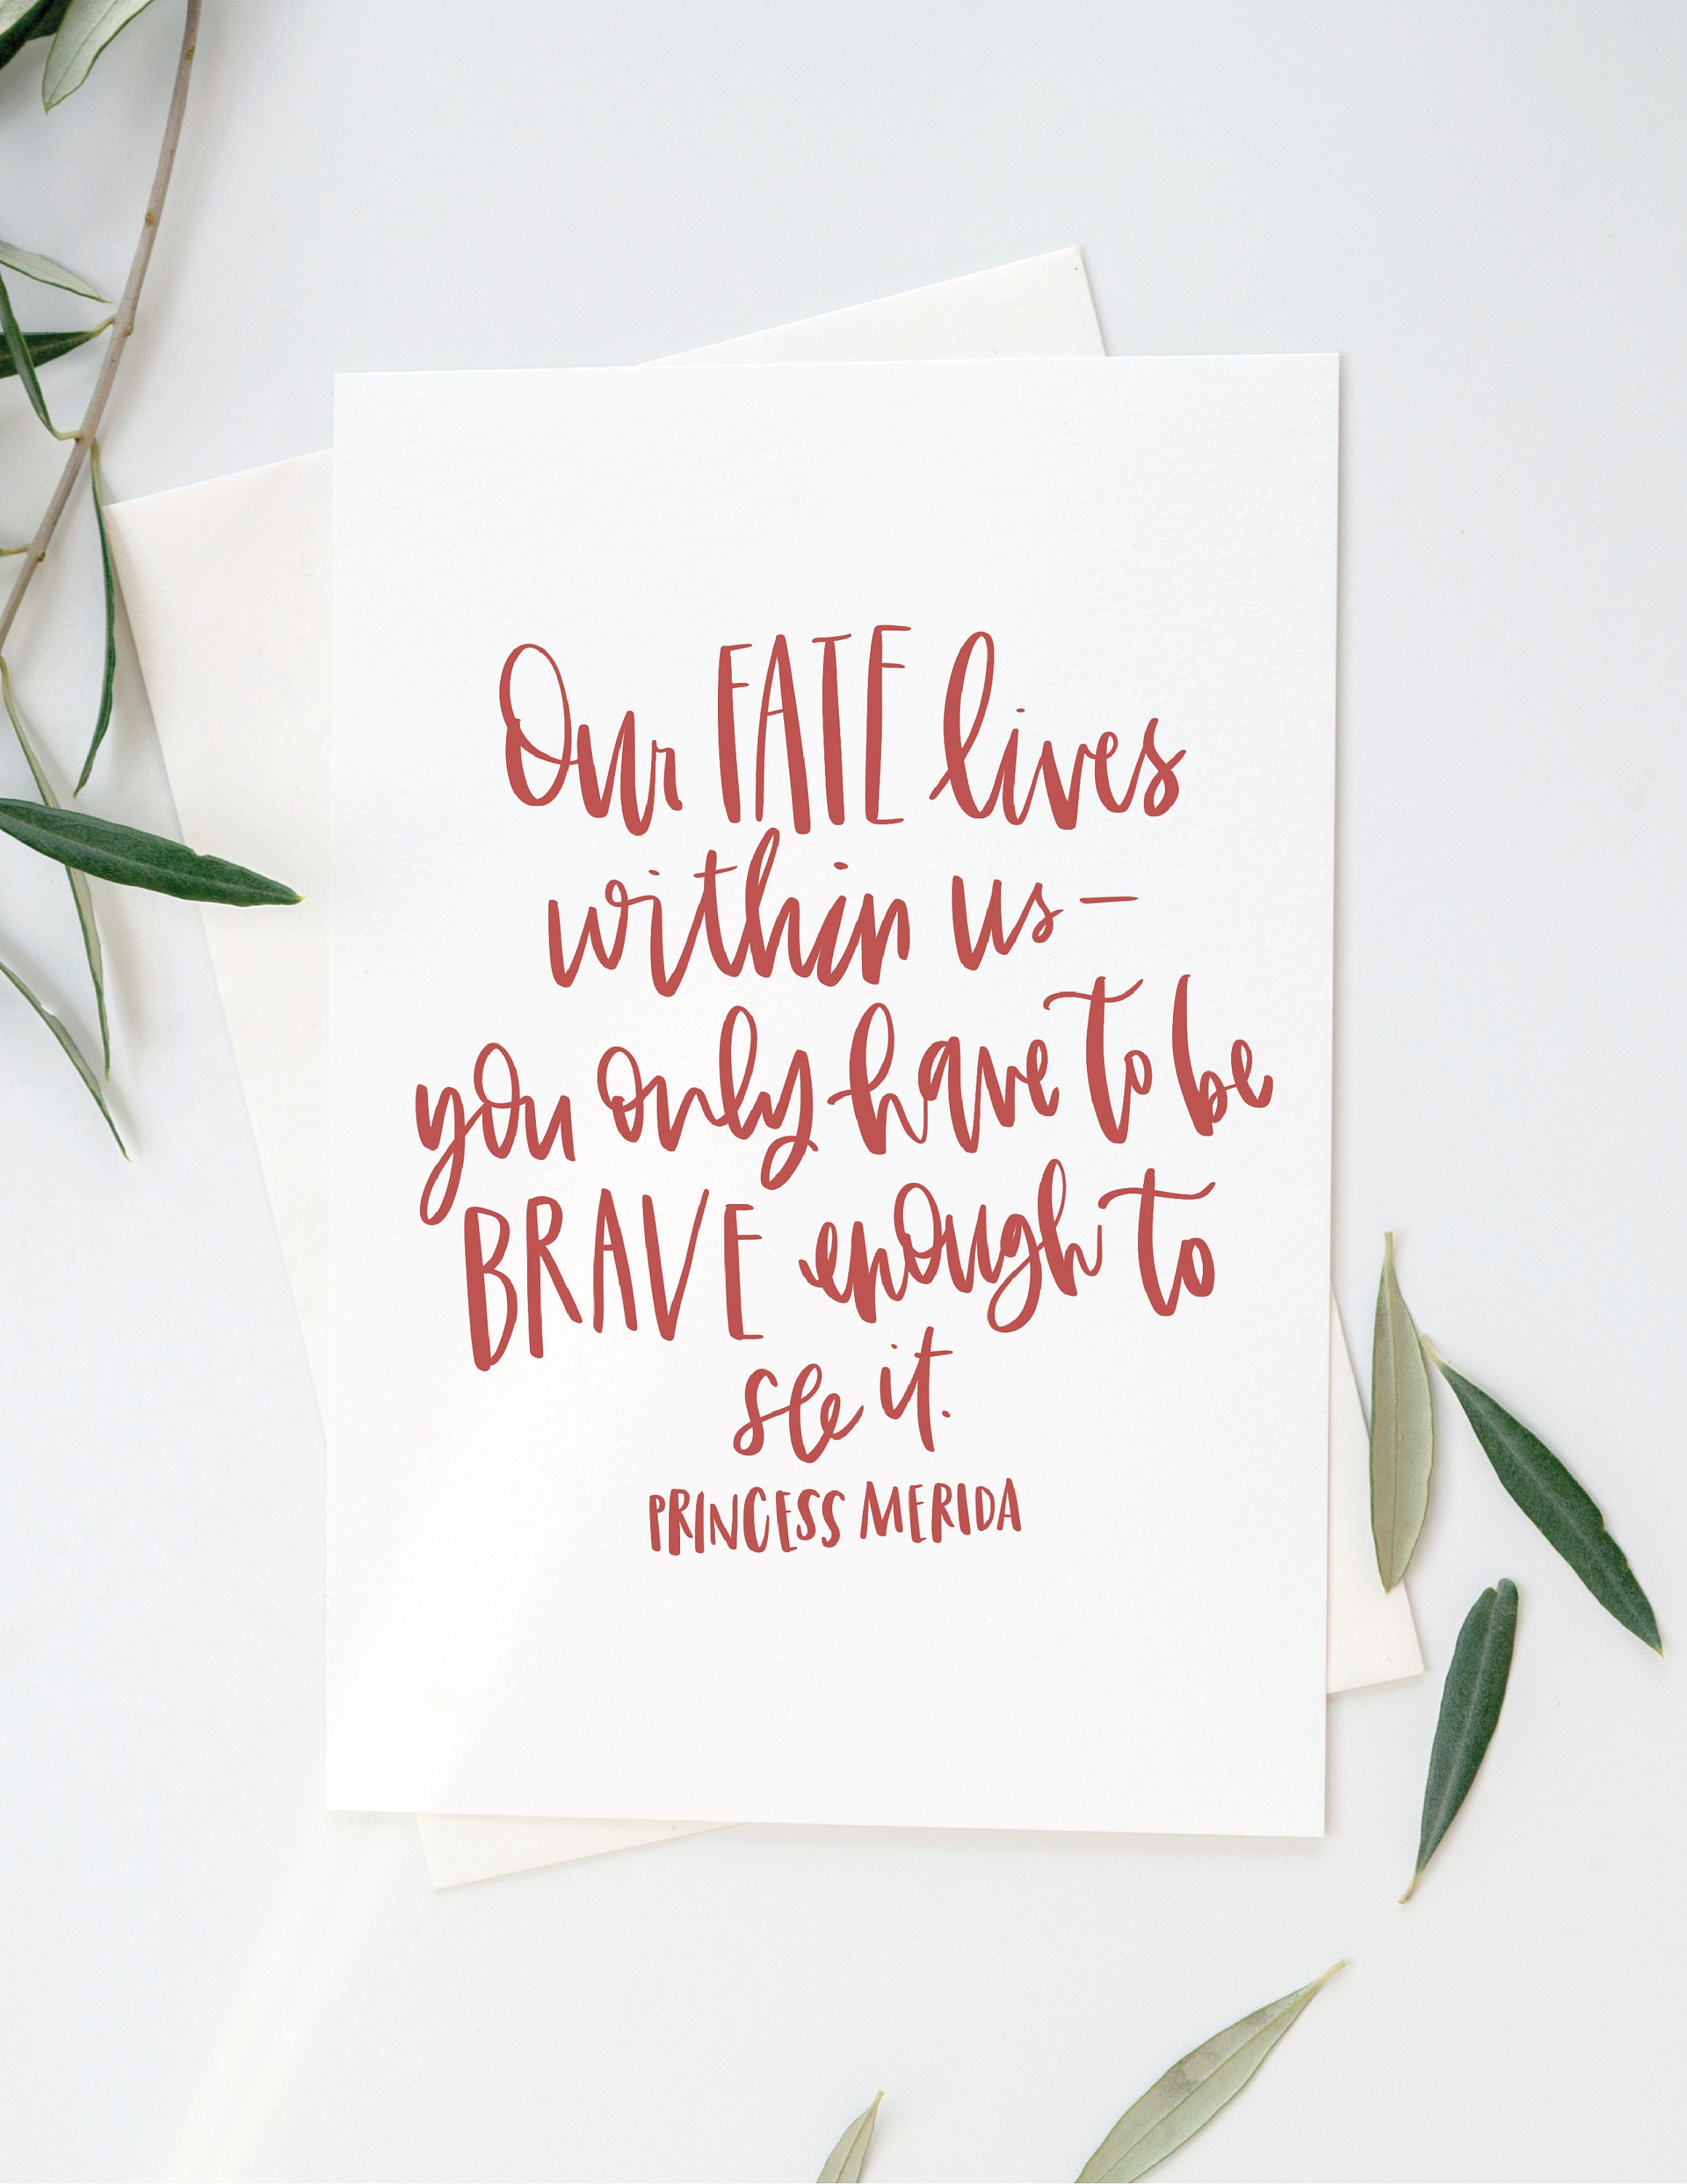 Our FATE lives
within us—
you only have to be
BRAVE enough to
see it.
PRINCESS MERIDA